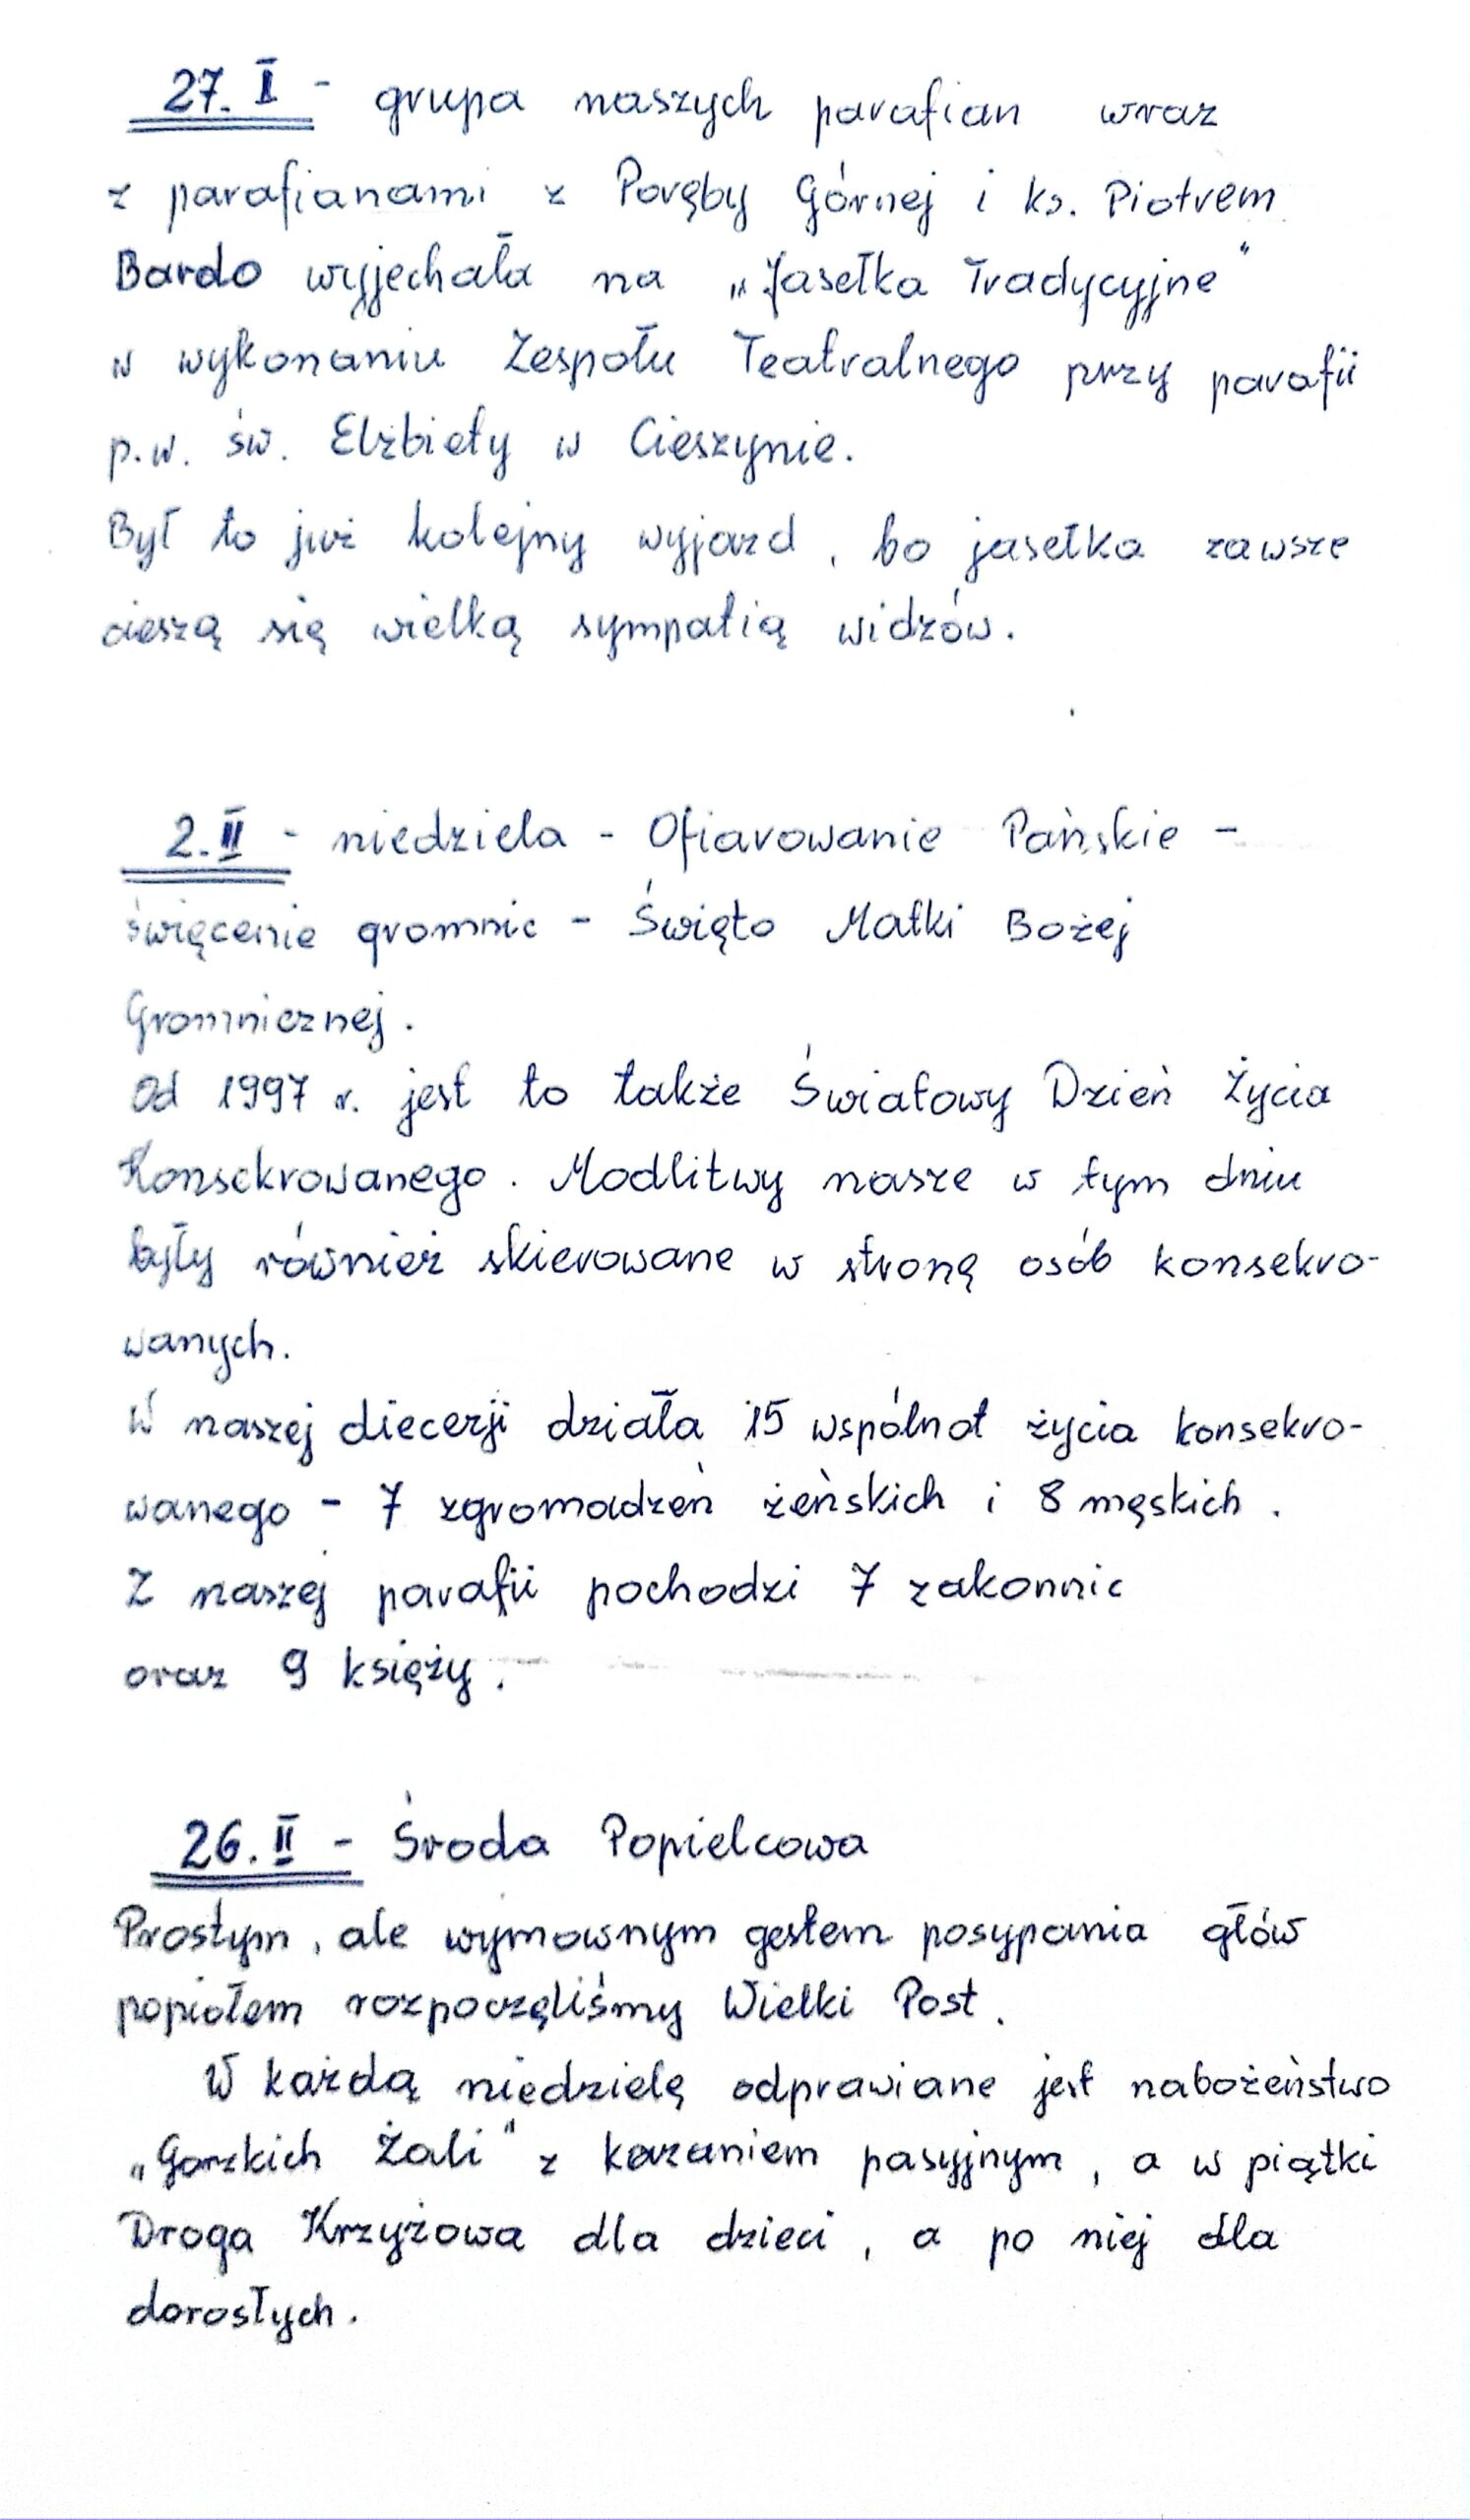 27. I - grupa naszych parafian wraz
z parafianami z Poręby Górnej i ks. Piotrem
Bardo wyjechała na „Jasełka Tradycyjne”
w wykonaniu Zespołu Teatralnego przy parafii
p.w. św. Elżbiety w Cieszynie.
Był to już kolejny wyjazd, bo jasełka zawsze
cieszą się wielką sympatią widzów.
2. II - niedziela - Ofiarowanie Pańskie -
święcenie gromnic - Święto Matki Bożej
Gromnicznej.
Od 1997 r. jest to także Światowy Dzień Życia
Konsekrowanego. Modlitwy nasze w tym dniu
były również skierowane w stronę osób konsekro-
wanych.
W naszej diecezji działa 15 wspólnot życia konsekro-
wanego - 7 zgromadzeń żeńskich i 8 męskich.
Z naszej parafii pochodzi 7 zakonnic
oraz 9 księży.
26. II - Środa Popielcowa
Prostym, ale wymownym gestem posypania głów
popiołem rozpoczęliśmy Wielki Post.
W każdą niedzielę odprawiane jest nabożeństwo
„Gorzkich Żali” z kazaniem pasyjnym, a w piątki
Droga Krzyżowa dla dzieci, a po niej dla
dorosłych.